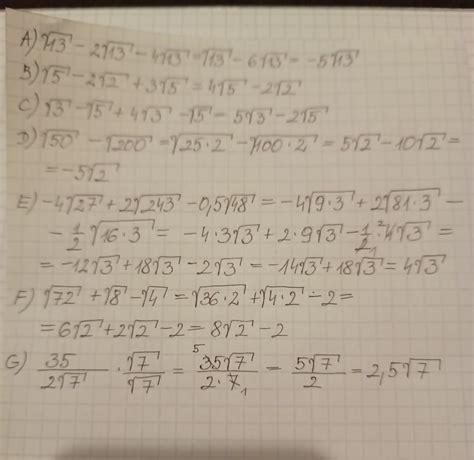 A) √13 - 2√13 - 4√13 = √13 - 6√13 = -5√13
B) √5 - 2√2 + 3√5 = 4√5 - 2√2
C) √3 - √5 + 4√3 - √5 = 5√3 - 2√5
D) √50 - √200 = √25·2 - √100·2 = 5√2 - 10√2 =
= -5√2
E) -4√27 + 2√243 - 0,5√48 = -4√9·3 + 2√81·3 -
- 1/2 √16·3 = -4·3√3 + 2·9√3 - 1/2 1 · 2 4√3 =
= -12√3 + 18√3 - 2√3 = -14√3 + 18√3 = 4√3
F) √72 + √8 - √4 = √36·2 + √4·2 - 2 =
= 6√2 + 2√2 - 2 = 8√2 - 2
G) 35/2√7 · √7/√7 = 5 35√7/2·7 1 = 5√7/2 = 2,5√7